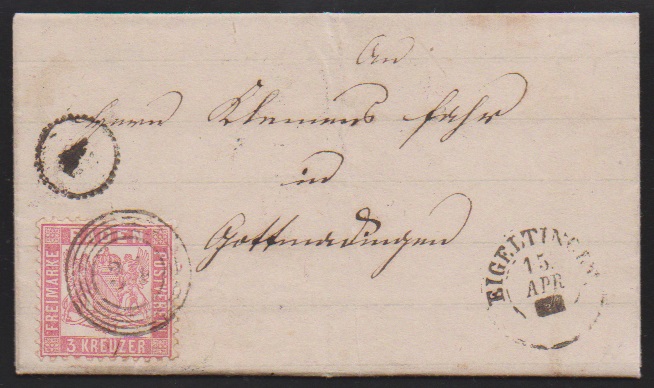 An
Herrn Klemens Fahr
in
Gottmadingen
EIGELTINGEN
15.
APR
BADEN
FREIMARKE
POSTVEREIN
3 KREUZER